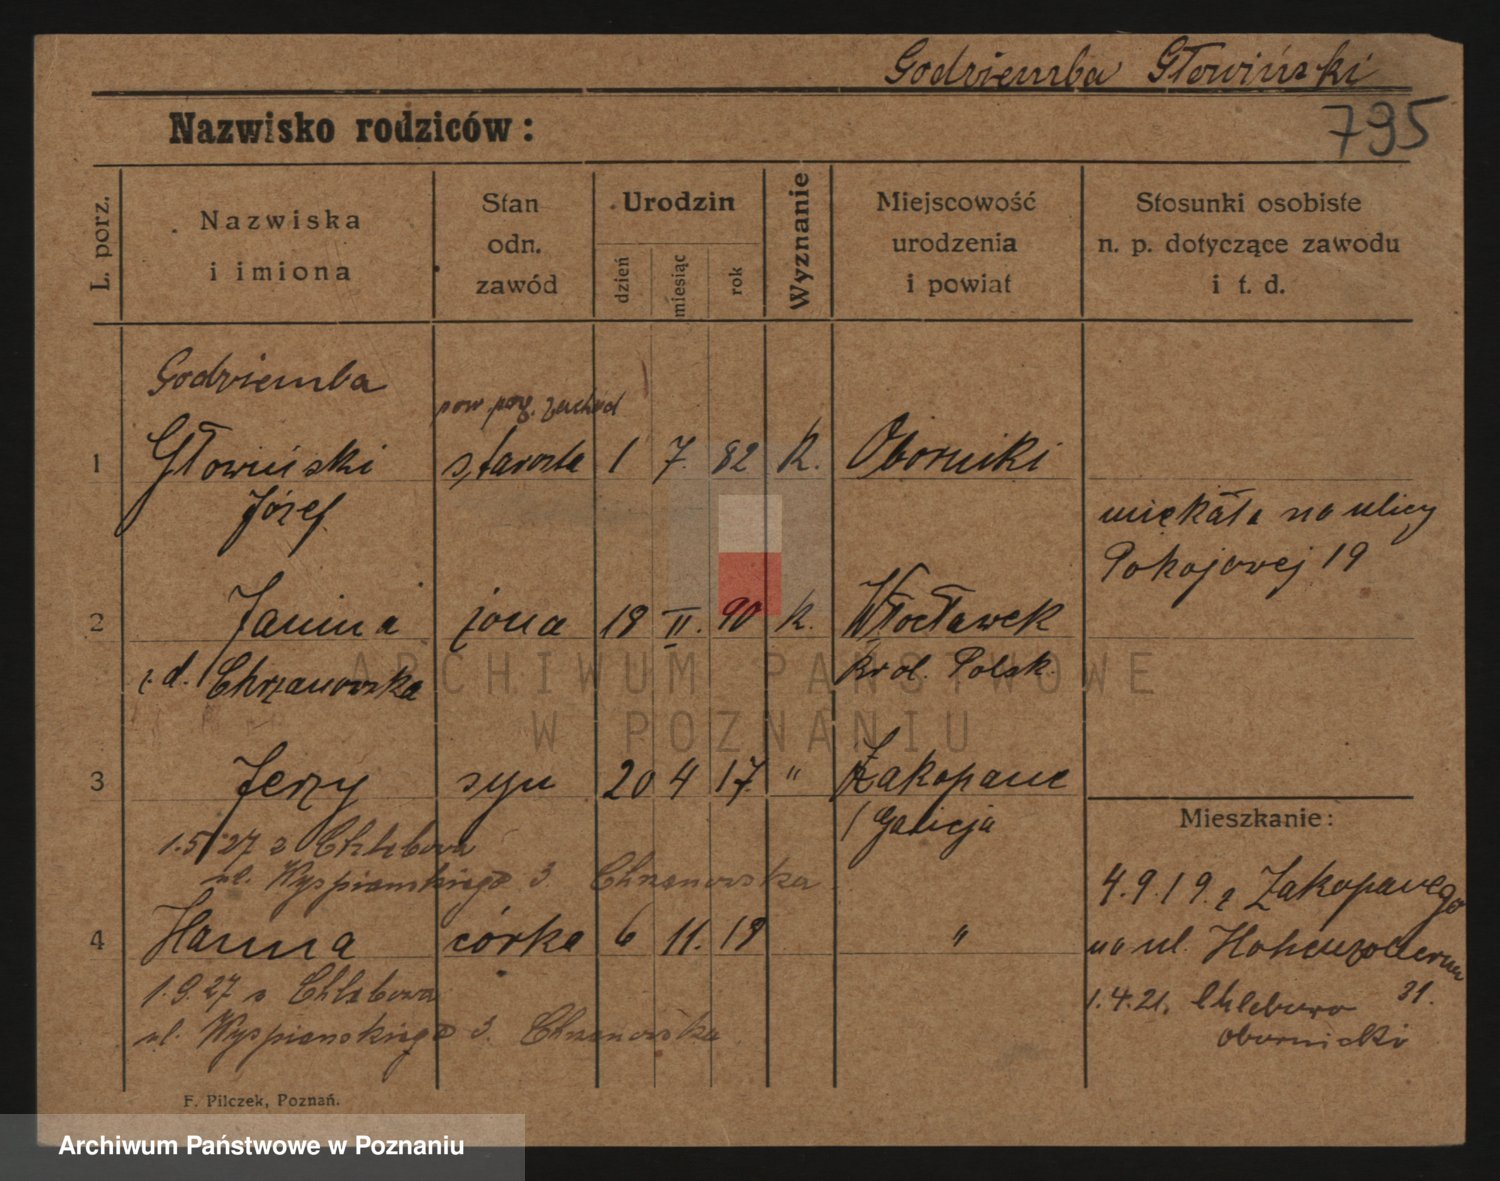 Godziemba Głowiński
Nazwisko rodziców:
795
L. porz.
Nazwiska
i imiona
Stan
odn.
zawód
Urodzin
dzień
miesiąc
rok
Wyznanie
Miejscowość
urodzenia
i powiat
Stosunki osobiste
n. p. dotyczące zawodu
i t. d.
Godziemba
pow. poz. zachód
1 Głowiński starosta 1 7. 82 k. Oborniki
Józef
na ulicy
Pokojowej 19
2 Janina żona 18 II. 90 k. Włocławek
z d. Chrzanowska Król. Polsk.
3 Jerzy syn 20 4 17 " Zakopane
/ Galicja
Mieszkanie:
1.5 27 z Chlebowa
ul. Wyspiańskiego 3. Chrzanowska
4.9.19. z Zakopanego
4 Hanna córka 6 11. 19 "
na ul. Hohenzollernu
31.
1.9.27 z Chlebowa
1.4.21. Chlebowo
ul. Wyspiańskiego 3. Chrzanowska
obornicki
F. Pilczek, Poznań.
ARCHIWUM PAŃSTWOWE
W POZNANIU
Archiwum Państwowe w Poznaniu